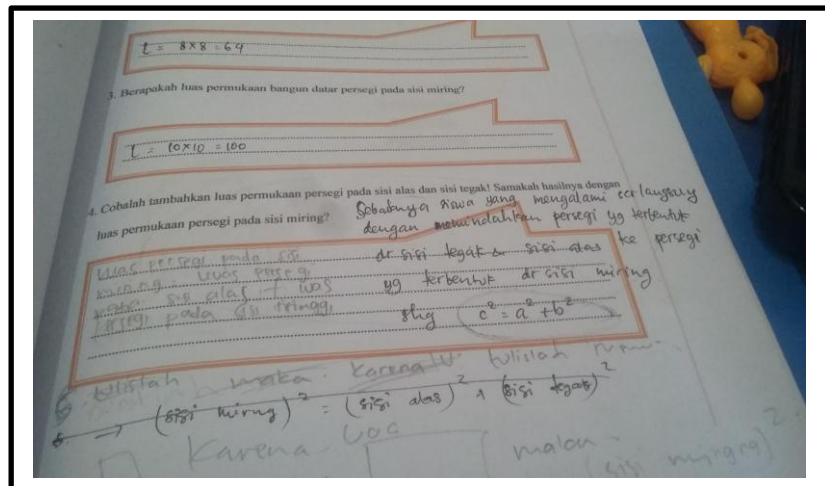 t = 8 x 8 = 64
3. Berapakah luas permukaan bangun datar persegi pada sisi miring?
t = 10 x 10 = 100
4. Cobalah tambahkan luas permukaan persegi pada sisi alas dan sisi tegak! Samakah hasilnya dengan
luas permukaan persegi pada sisi miring?
Sebabnya siswa yang mengalami scr langsung
dengan memindahkan persegi yg terbentuk
dr sisi tegak & sisi alas ke persegi
yg terbentuk dr sisi miring
shg c² = a² + b²
Luas persegi pada sisi
miring = luas persegi
pada sisi alas + luas
persegi pada sisi tinggi
tulislah maka karena tulislah
→ (sisi miring)² = (sisi alas)² + (sisi tegak)²
Karena
(sisi miring)²